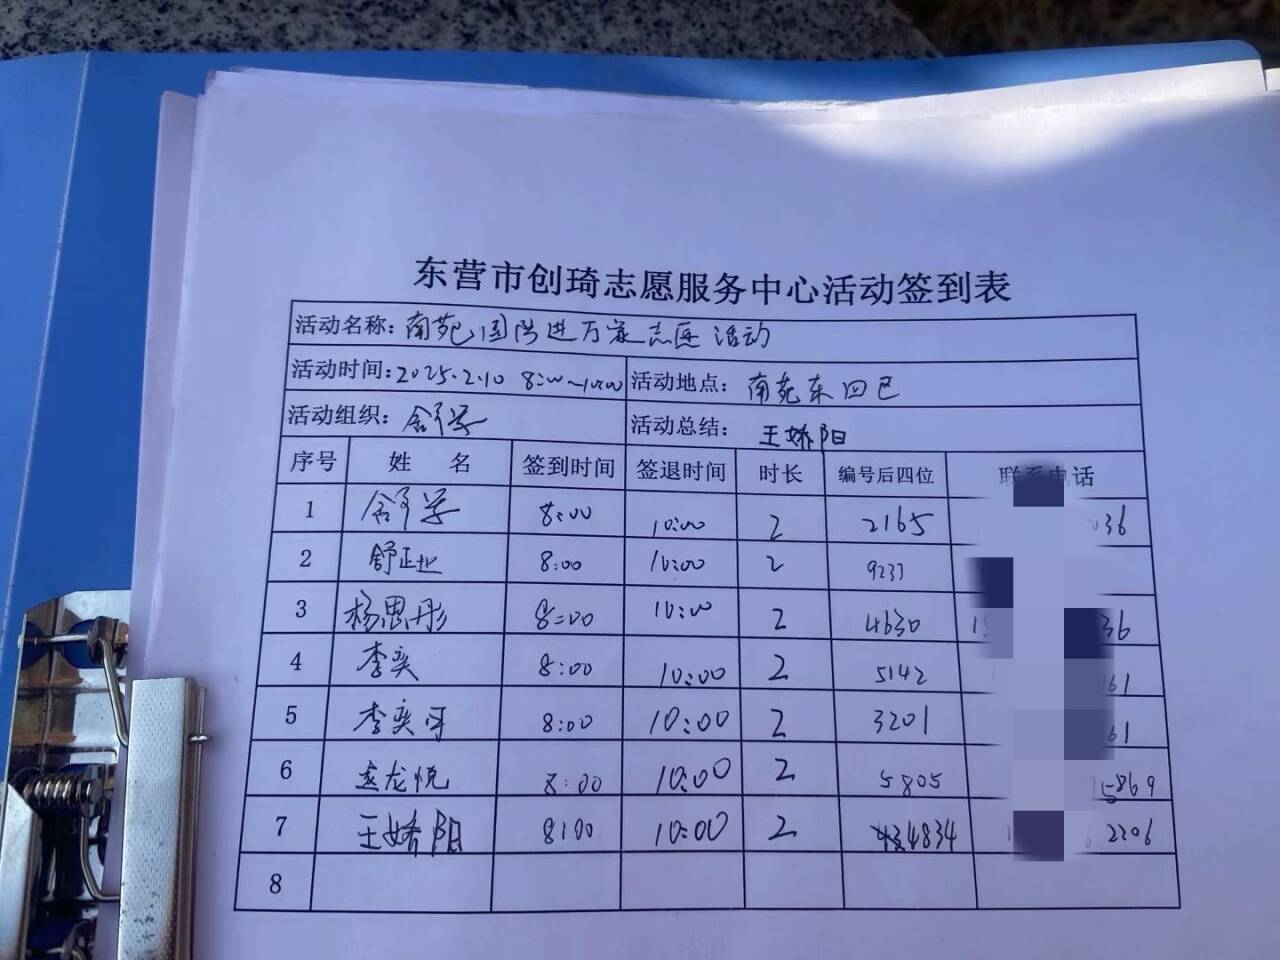 东营市创琦志愿服务中心活动签到表
活动名称：南苑国防进万家志愿活动
活动时间：2025.2.10 8:00~10:00 活动地点：南苑东四巴
活动组织：舒 活动总结：王娇阳
序号 姓 名 签到时间 签退时间 时长 编号后四位 联系电话
1 8:00 10:00 2 2165 36
2 舒正业 8:00 10:00 2 9237
3 杨思彤 8:00 10:00 2 4630 15 36
4 李奕 8:00 10:00 2 5142 1 161
5 李奕可 8:00 10:00 2 3201 61
6 龙悦 8:00 10:00 2 5805 5869
7 王娇阳 8:00 10:00 2 4834 1 2206
8